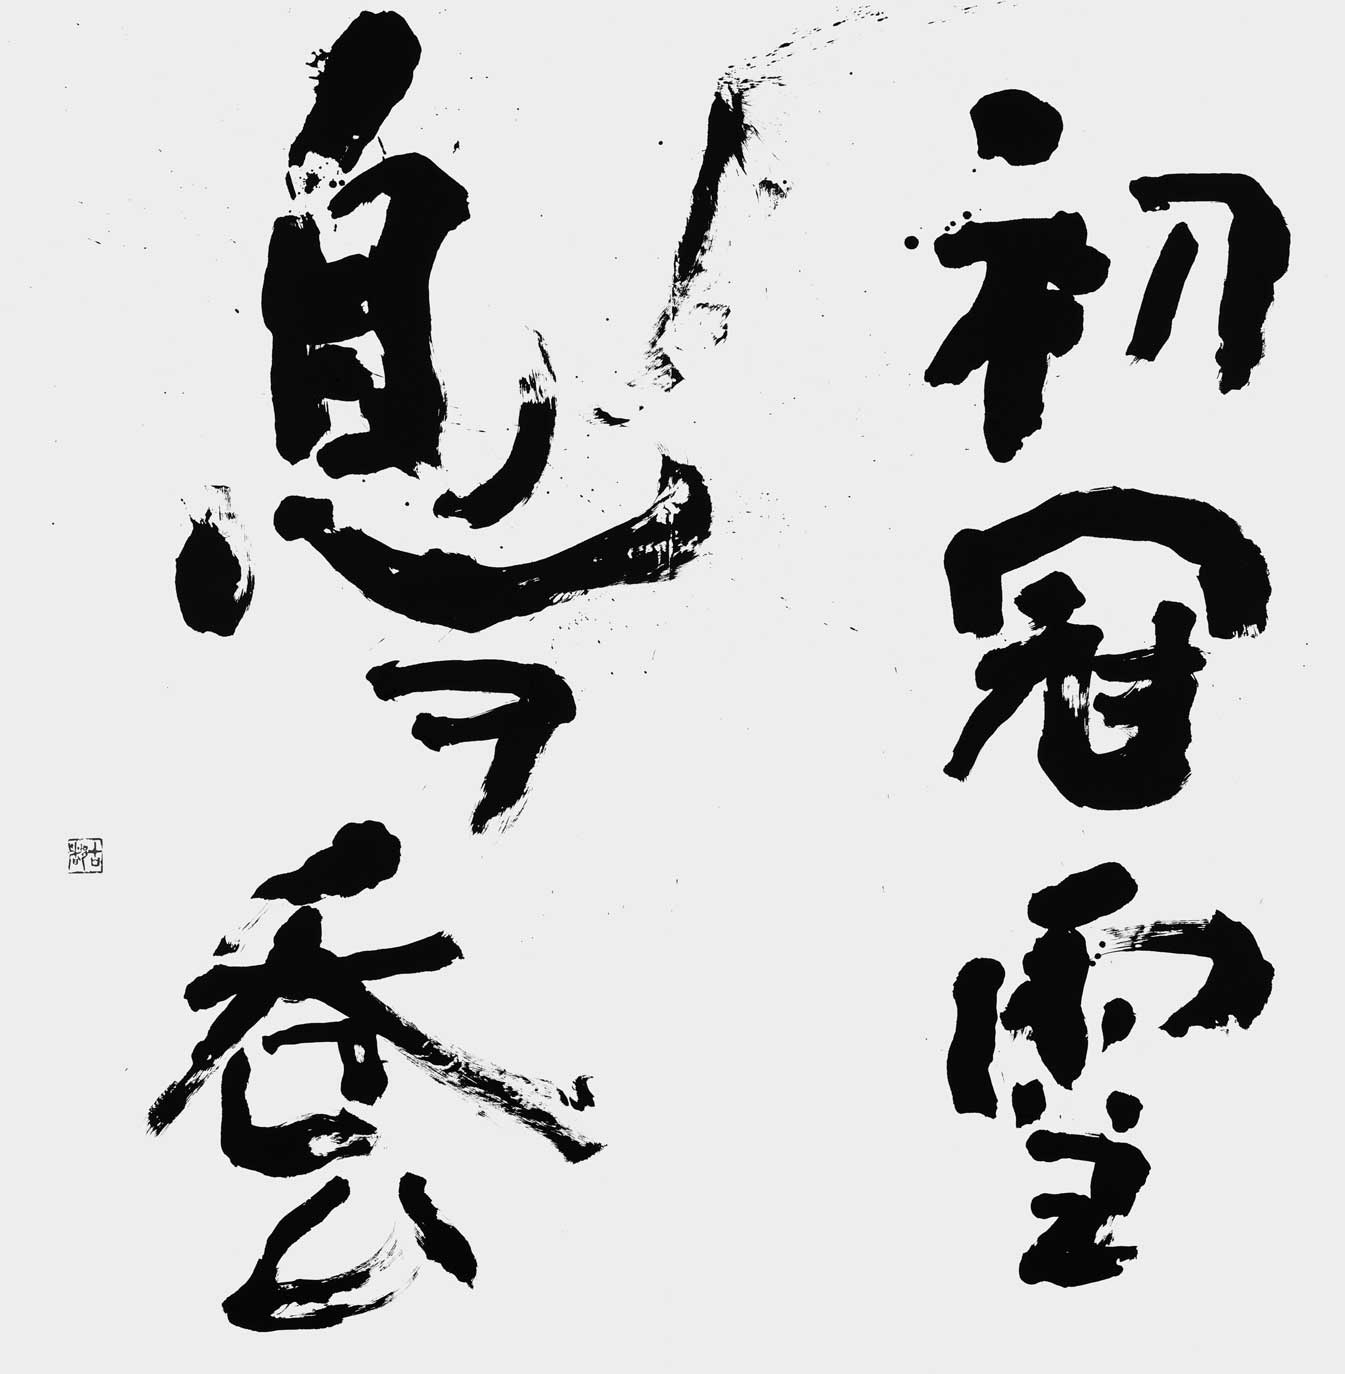 初冠雪
息ヲ呑ム